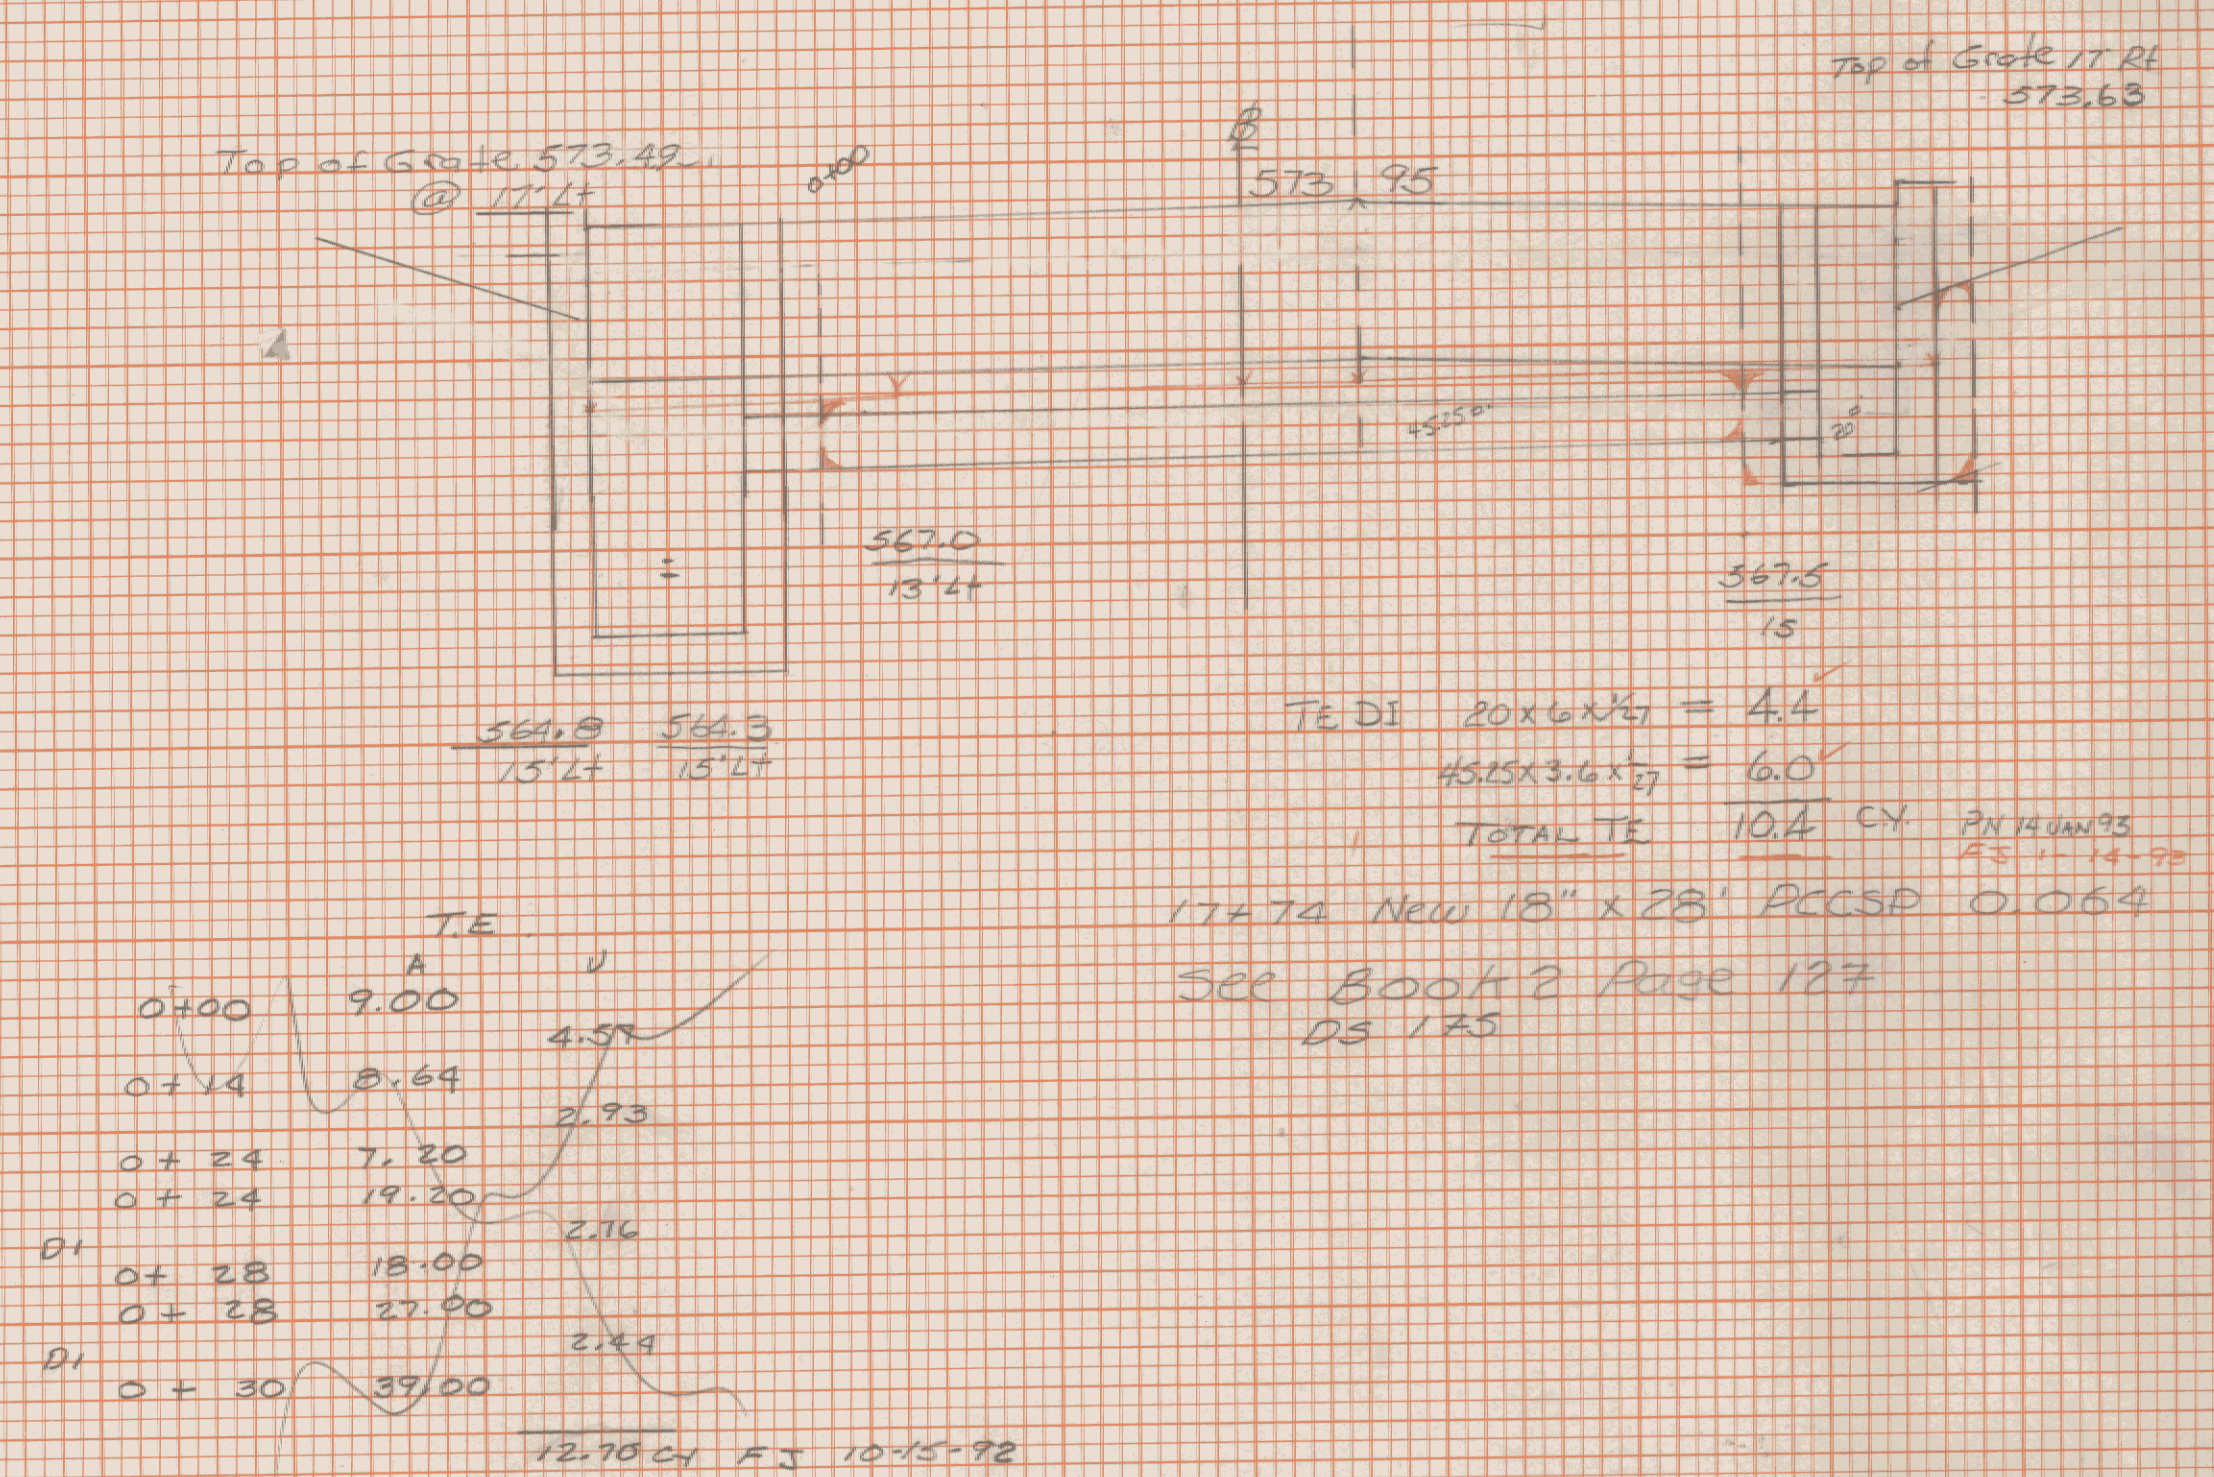 Top of Grate 17 Rt
573.63
Top of Grate 573.49
@ 17' Lt
0+00
573 95
45.25 0'
20
567.0
13' Lt
567.5
15
564.8 564.3
15' Lt 15' Lt
TE DI 20 x 6 x 1/27 = 4.4
45.25 x 3.6 x 1/27 = 6.0
TOTAL TE 10.4 C.Y. PN 14 JAN 93
FJ 1-14-93
17+74 New 18" x 28' PCCSP 0.064
See Book 2 Page 127
DS 175
T.E.
A V
0+00 9.00
4.57
0+14 8.64
2.93
0+24 7.20
0+24 19.20
DI 2.76
0+28 18.00
0+28 27.00
DI 2.44
0+30 39.00
12.70 CY FJ 10-15-92